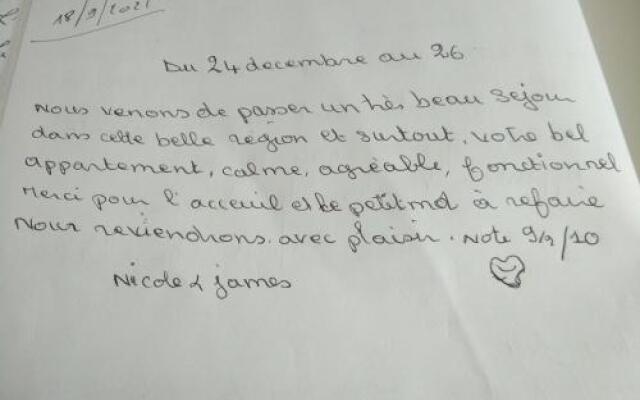 18/9/2021
Du 24 decembre au 26
Nous venons de passer un très beau sejour
dans cette belle région et surtout, votre bel
appartement, calme, agréable, fonctionnel
Merci pour l'acceuil et le petit mot à refaire
Nous reviendrons avec plaisir. Note 9/10
Nicole & james